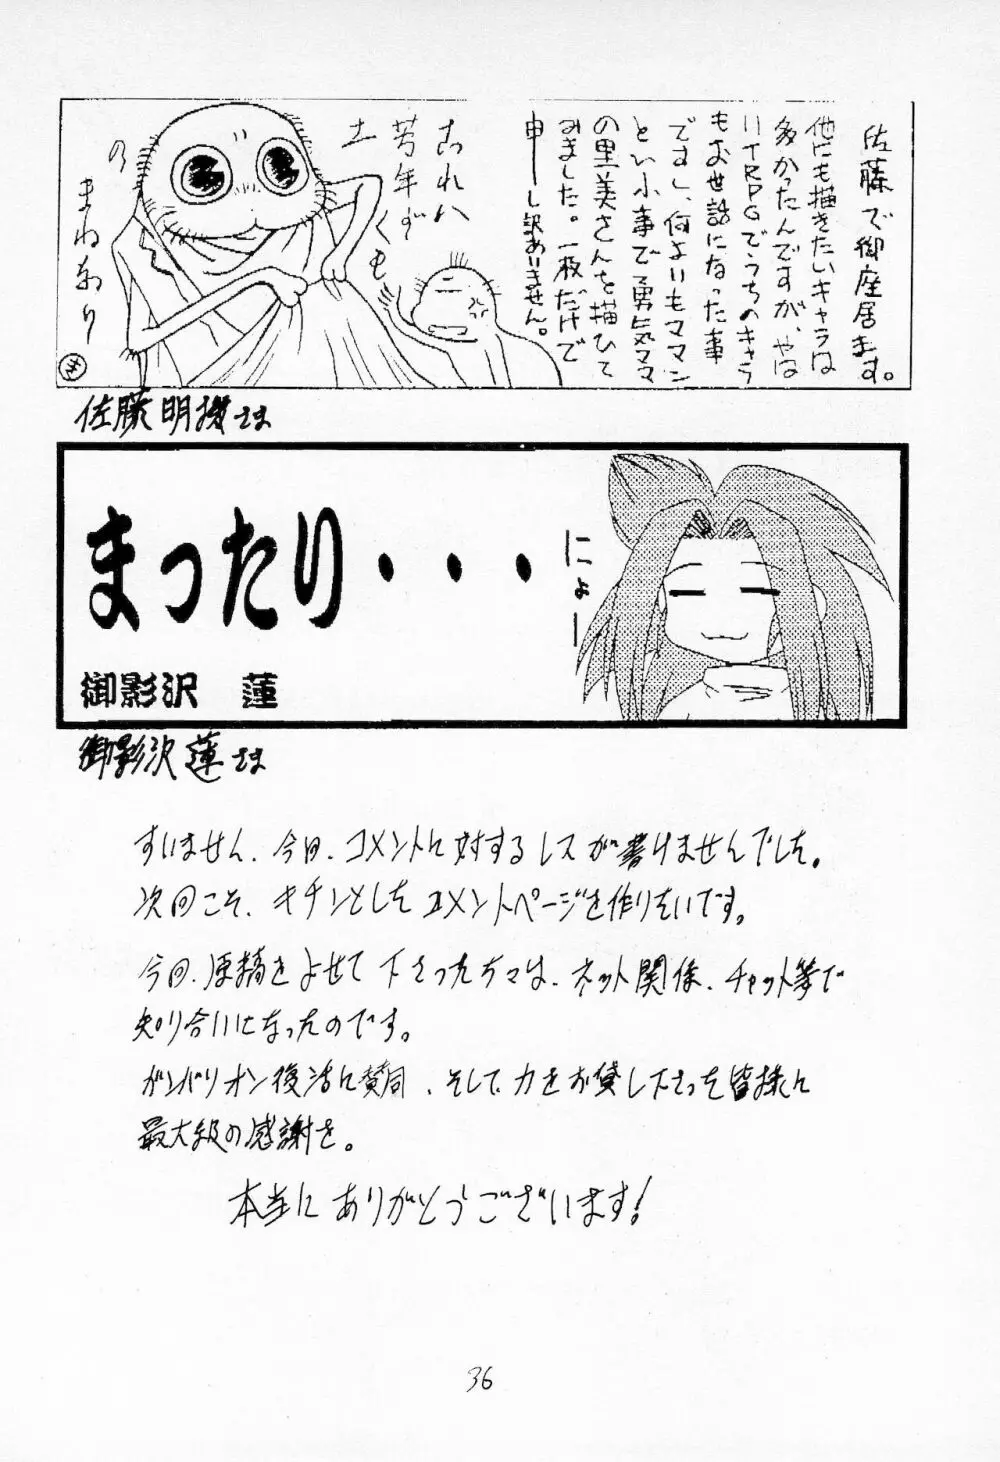 佐藤で御座居ます。
他にも描きたいキャラは
多かったんですが、やは
りTRPGでうちのキャラ
もお世話になった事
ですし、何よりもママン
という事で勇気ママ
の里美さんを描いて
みました。一枚だけで
申ーし訳ありません。
これは
芳年ず
くも
土
の
まねあり
佐藤明機さま
まったり・・・
にょー
御影沢 蓮
御影沢蓮さま
すいません、今回、コメントに対するレスが書けませんでした。
次回こそ、キチンとしたコメントページを作りたいです。
今回、原稿をよせて下さった方々は、ネット関係、チャット等で
知り合いになったのです。
ガンバリオン復活に賛同、そして力をお貸し下さった皆様に
最大級の感謝を。
本当にありがとうございます!
36